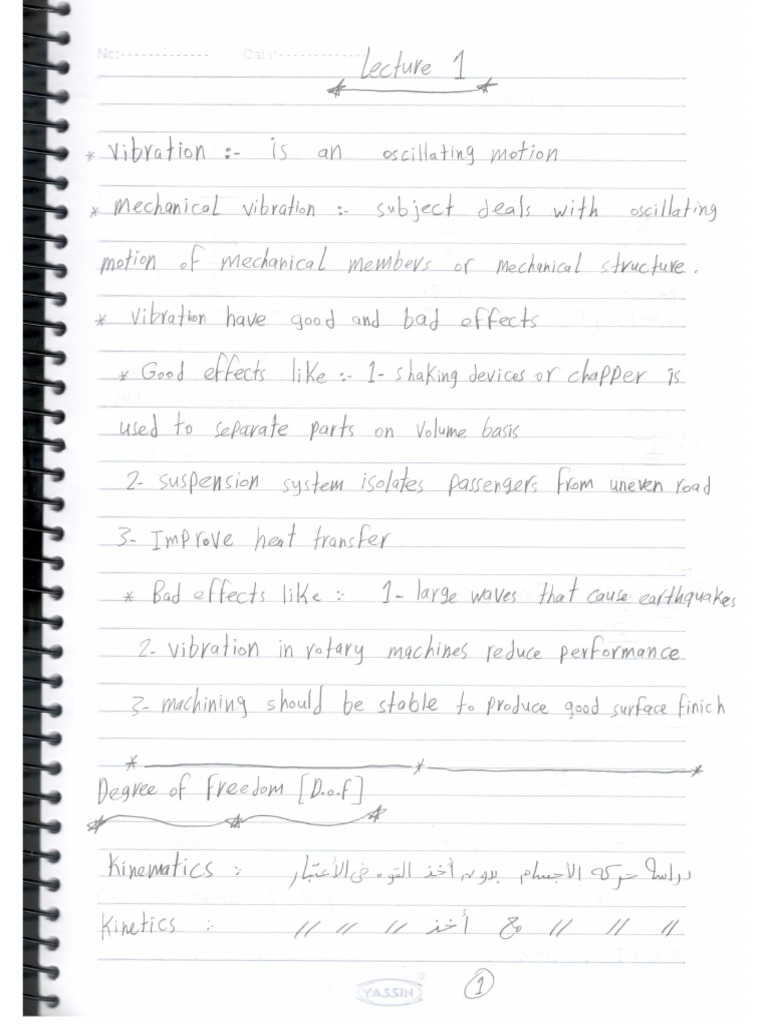 No:-------------- Date:--------------
Lecture 1
* Vibration :- is an oscillating motion
* Mechanical vibration :- subject deals with oscillating
motion of mechanical members or mechanical structure.
* Vibration have good and bad effects
* Good effects like :- 1- shaking devices or chapper is
used to separate parts on volume basis
2- suspension system isolates passengers from uneven road
3- Improve heat transfer
* Bad effects like :- 1- large waves that cause earthquakes
2- vibration in rotary machines reduce performance
3- machining should be stable to produce good surface finich
Degree of freedom [D.o.f]
Kinematics :- دراسة حركة الأجسام بدون أخذ القوه في الأعتبار
Kinetics :- // // // مع أخذ // // //
YASSIN
1